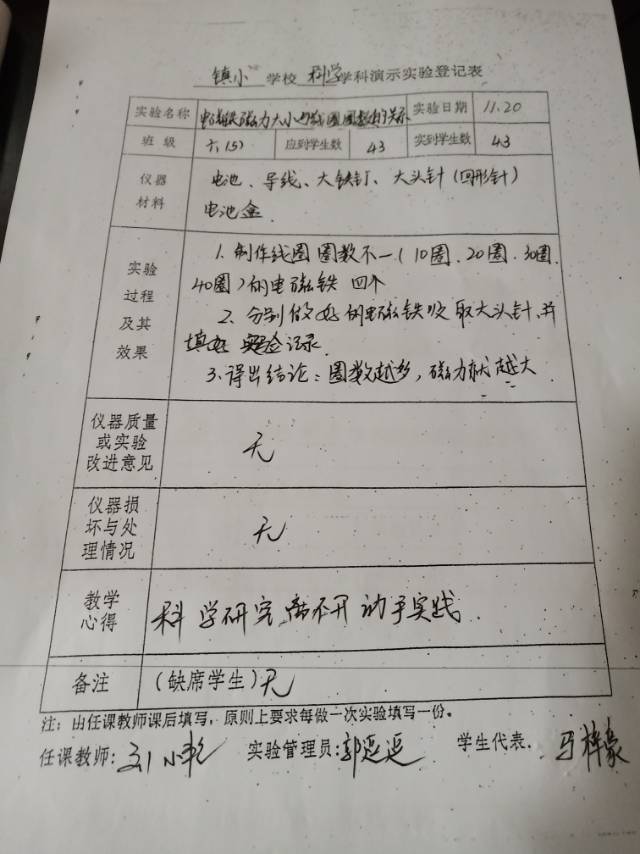 镇小 学校 科学 学科演示实验登记表
实验名称 电磁铁磁力大小与线圈圈数的关系 实验日期 11.20
班级 六(5) 应到学生数 43 实到学生数 43
仪器材料 电池、导线、大铁钉、大头针(回形针)
电池盒
实验过程及其效果 1. 制作线圈圈数不一(10圈、20圈、30圈、
40圈)的电磁铁 四个
2. 分别 做好的电磁铁吸取大头针,并
填好 实验记录.
3. 得出结论:圈数越多,磁力就越大
仪器质量或实验改进意见 无
仪器损坏与处理情况 无
教学心得 科学研究离不开动手实践.
备注 (缺席学生)无
注:由任课教师课后填写,原则上要求每做一次实验填写一份。
任课教师: 刘小 实验管理员:郭延延 学生代表. 马梓豪